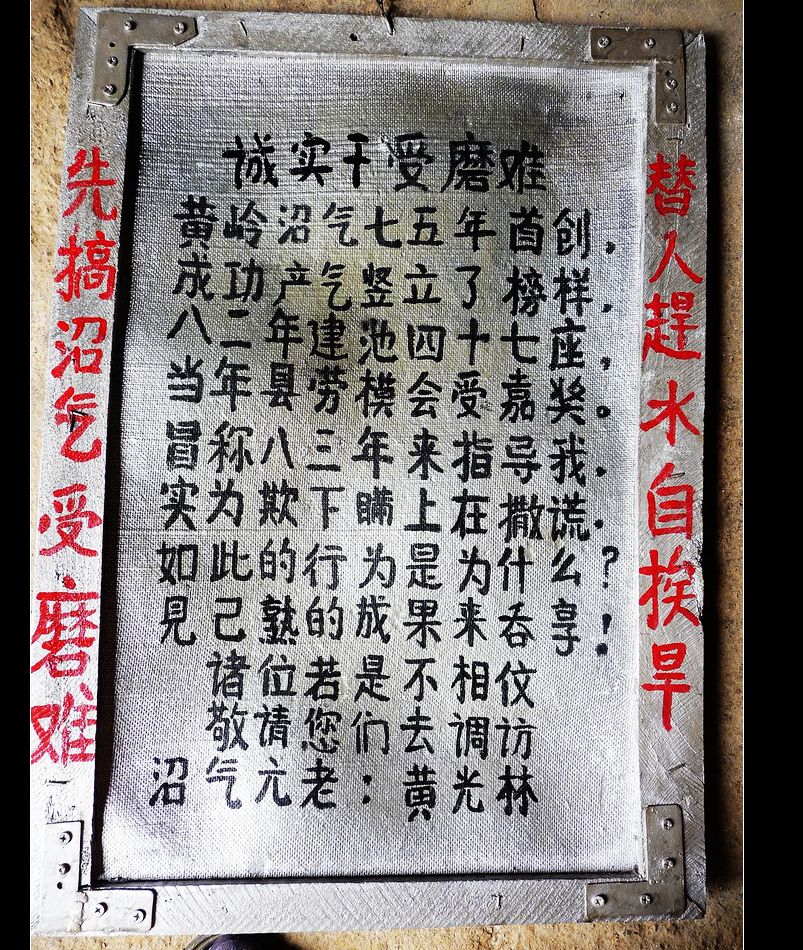 诚实干受磨难
黄岭沼气七五年首创.
成功产气竖立了榜样.
八二年建池四十七座,
当年县劳模会受嘉奖。
冒称八三年来指导我.
实为欺下瞒上在撒谎.
如此的行为是为什么?
見己熟的成果来吞享!
诸位若是不相伩
敬请您们去调访
沼气元老:黄光林
先搞沼气受磨难
替人趕水自挨旱